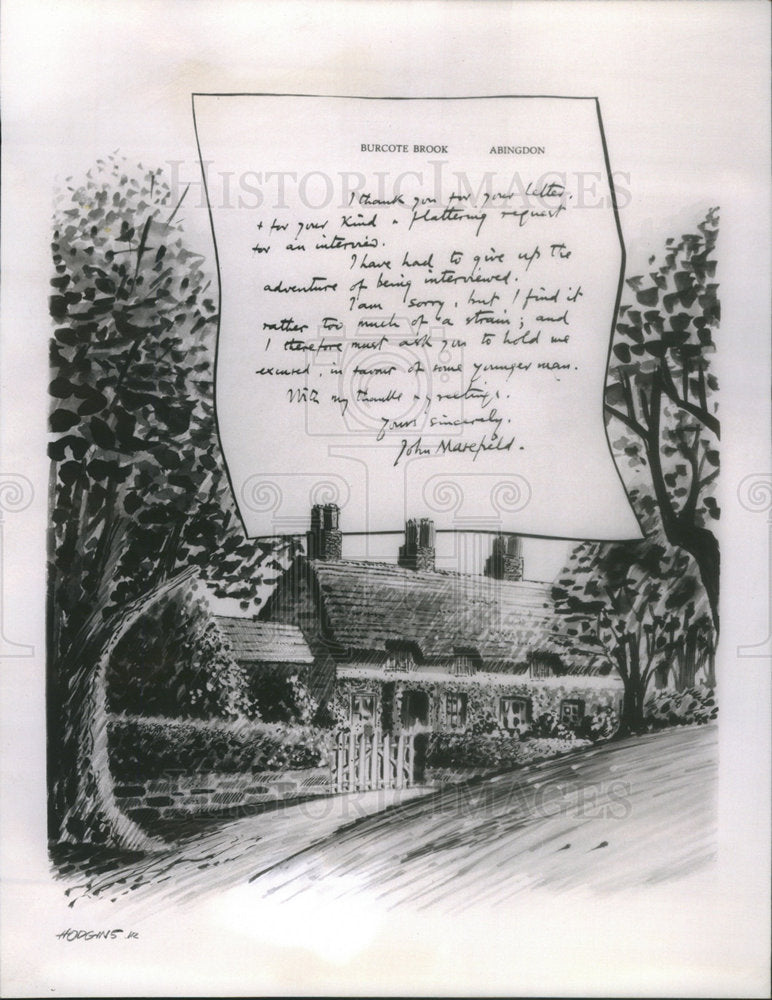 BURCOTE BROOK ABINGDON
HISTORICIMAGES
I thank you for your letter,
+ for your kind & flattering request
for an interview.
I have had to give up the
adventure of being interviewed.
I am sorry, but I find it
rather too much of a strain; and
I therefore must ask you to hold me
excused, in favour of some younger man.
With my thanks & greetings.
Yours sincerely,
John Masefield.
HISTORICIMAGES
HODGINS